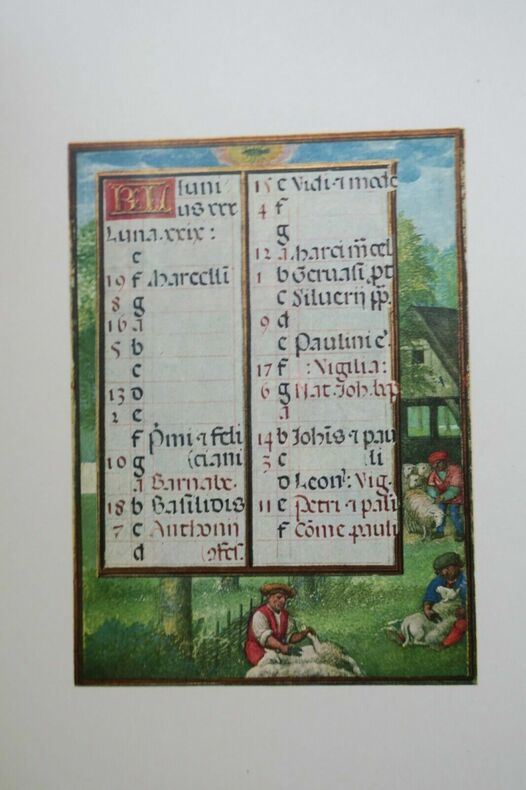 KL Iuni
us xxx
Luna xxix:
e
19 f Marcelli
8 g
16 A
5 b
c
13 d
2 e
f P̄mi ⁊ feli
10 g ciani
A Barnabe.
18 b Basilidis
7 c Anthonij
d ꝯfes.
15 e Vidi ⁊ mode
4 f
g
12 A Marci m̄cel
1 b Geruasij. ꝓt
c Siluerij pp̄.
9 d
e Paulini e'.
17 f : Vigilia:
6 g Nat. Joh. bap
A
14 b Johīs ⁊ pau
3 c li
d Leon': Vig.
11 e Petri ⁊ pali
f Cōme. pauli